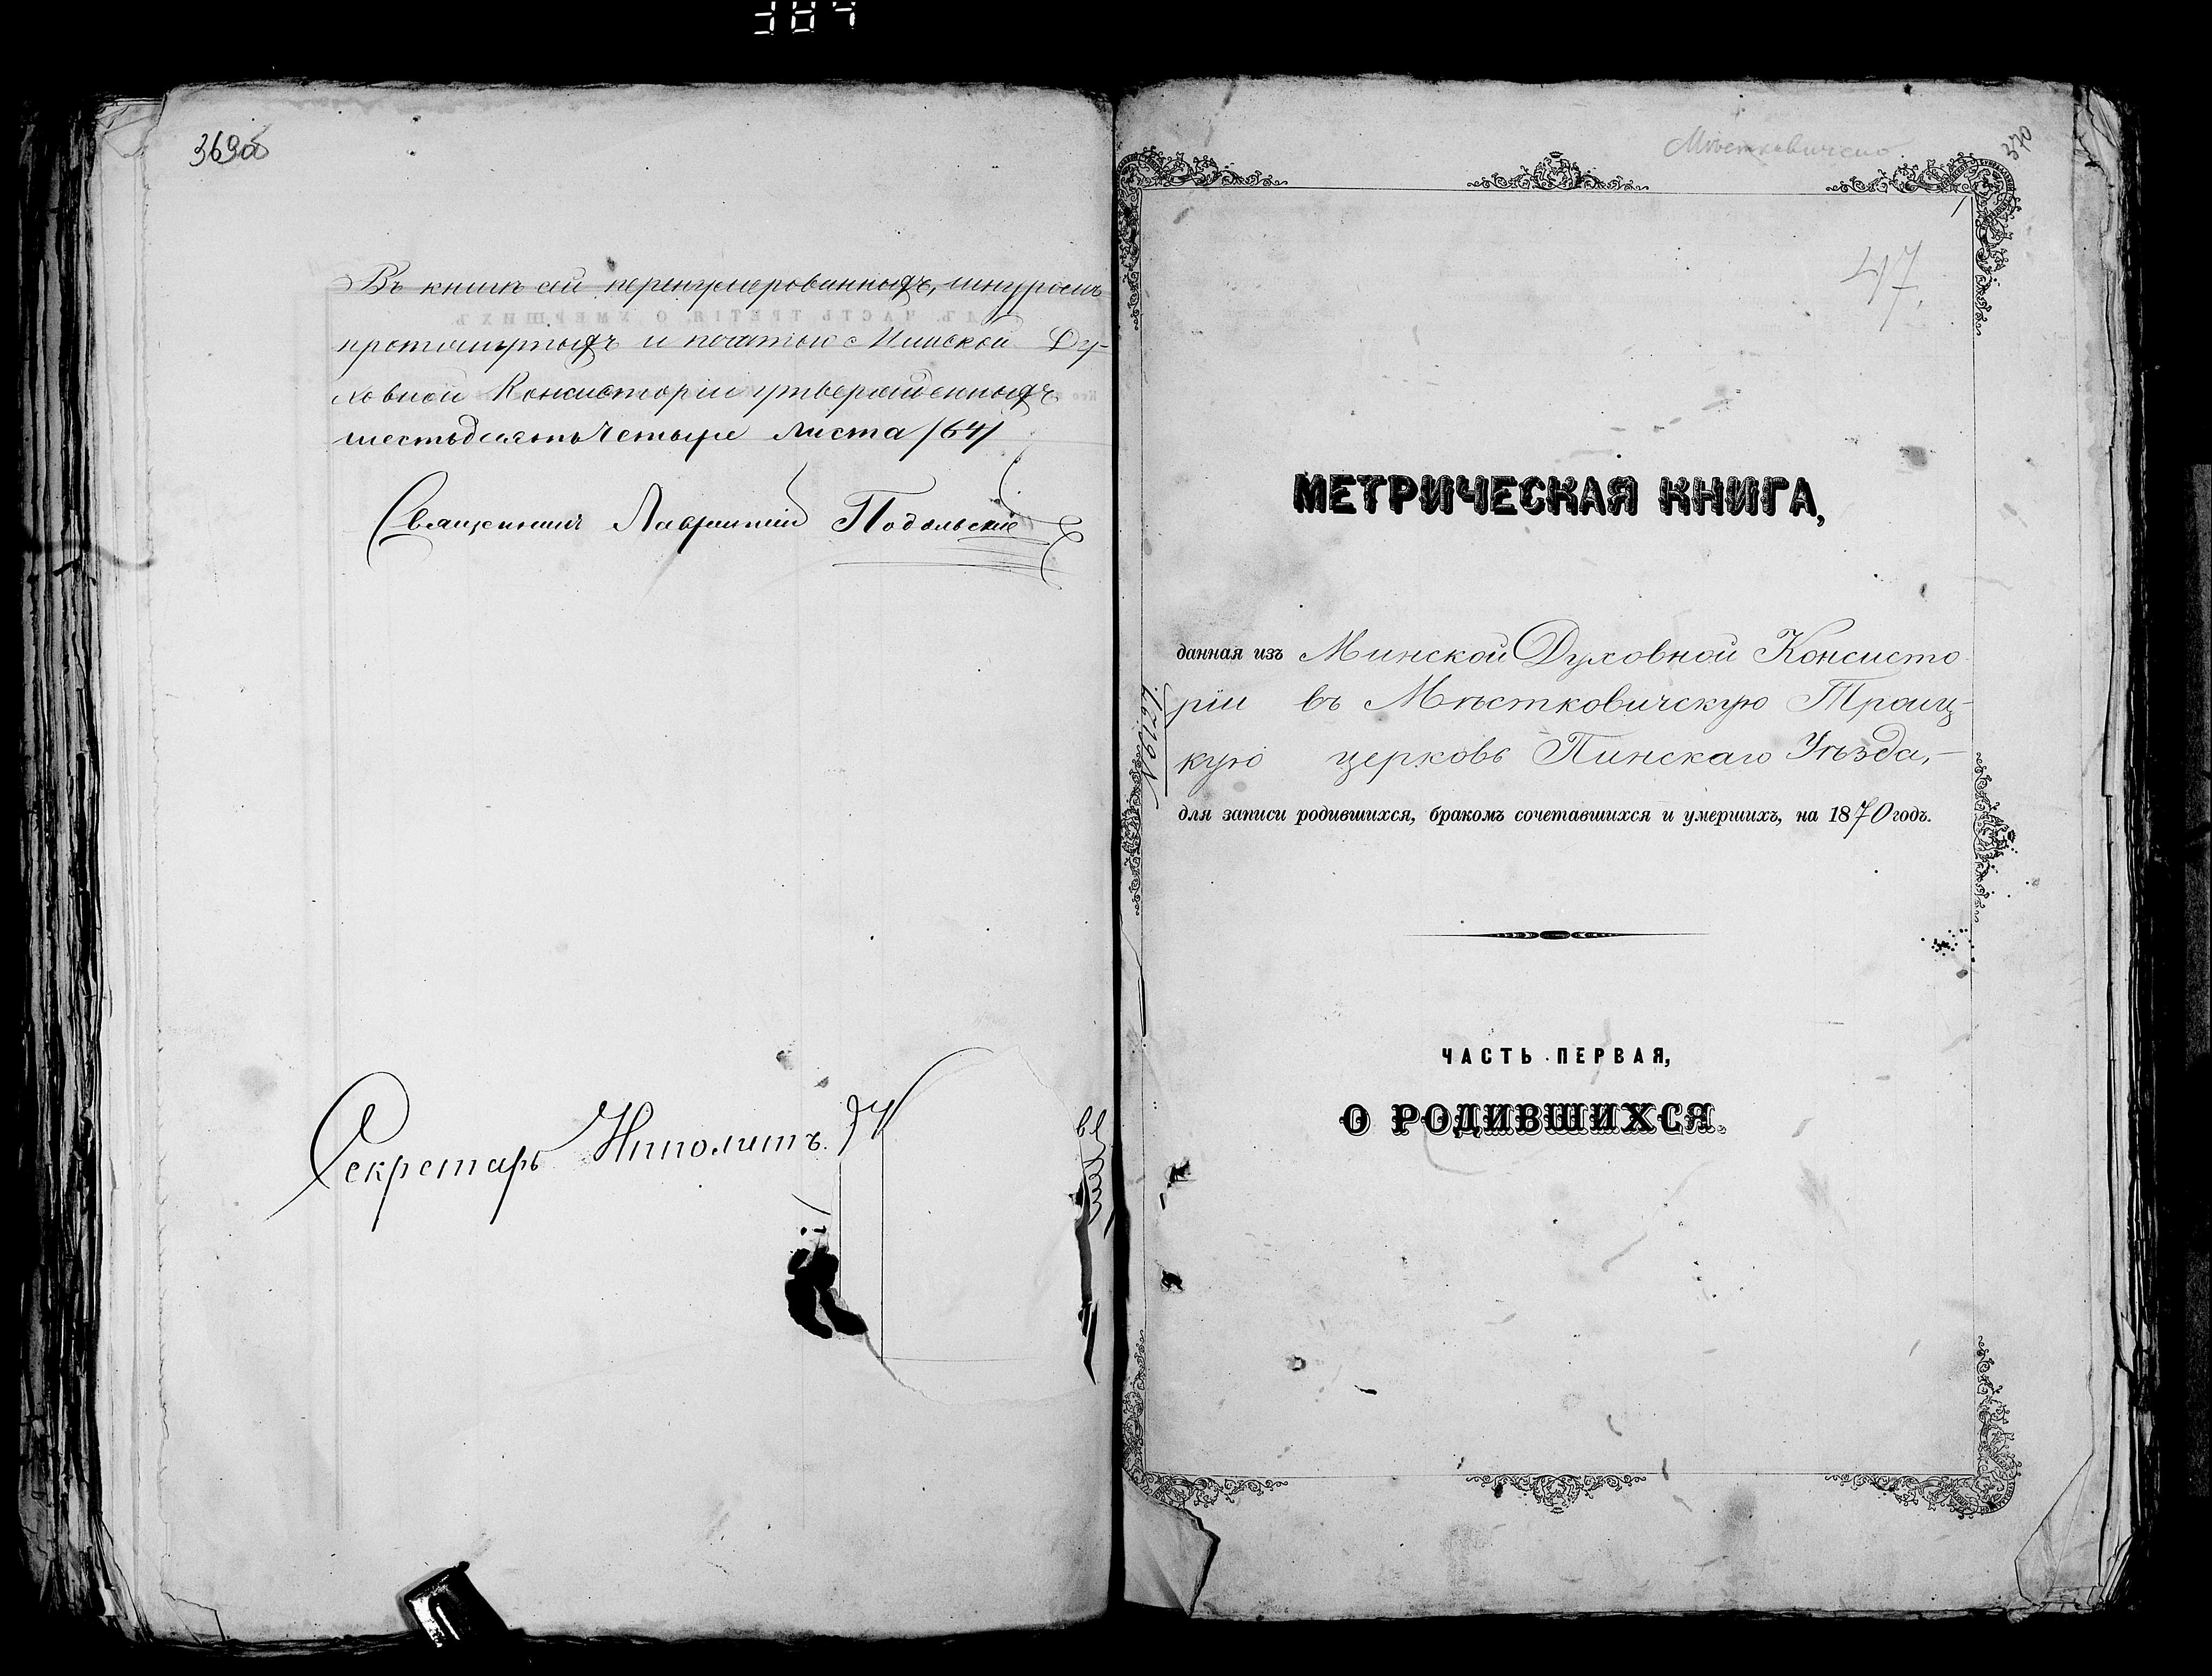 384
369об
Въ книгѣ сей перенумерованныхъ, шнуромъ
протянутыхъ и печатью Минской Ду-
ховной Консисторіи утвержденныхъ
шестьдесятъ четыре листа /64/
Священникъ Лаврентій Подольскій
Секретарь Иполитъ
370
47.
МЕТРИЧЕСКАЯ КНИГА,
данная изъ Минской Духовной Консисто
ріи въ Мѣстковичскую Троиц-
кую церковь Пинскаго Уѣзда,
для записи родившихся, бракомъ сочетавшихся и умершихъ, на 1870 годъ.
ЧАСТЬ ПЕРВАЯ,
О РОДИВШИХСЯ.